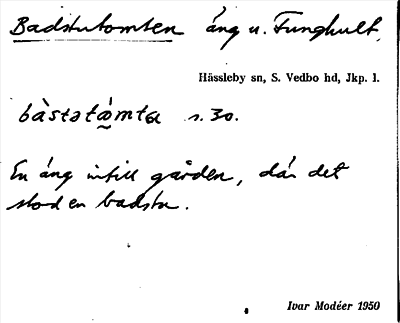 Badstutomten äng u. Funghult.
Hässleby sn, S. Vedbo hd, Jkp. l.
bàstatò̰mta s. 30.
En äng intill gården, där det
stod en badstu.
Ivar Modéer 1950